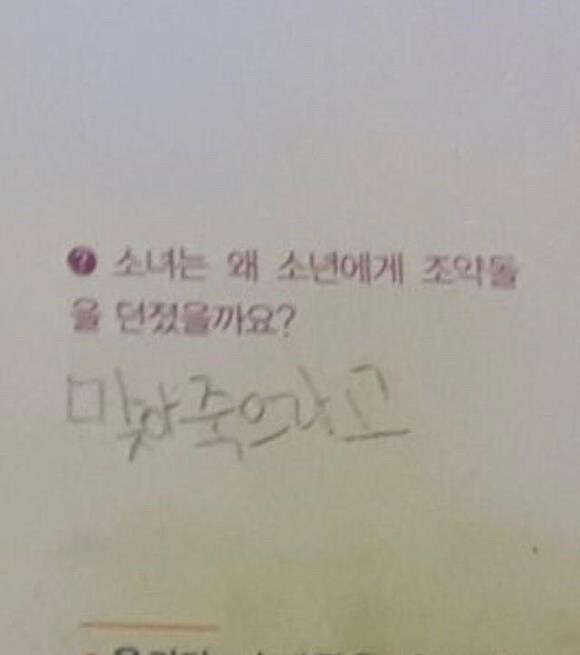 ? 소녀는 왜 소년에게 조약돌
을 던졌을까요?
맞아죽으라고